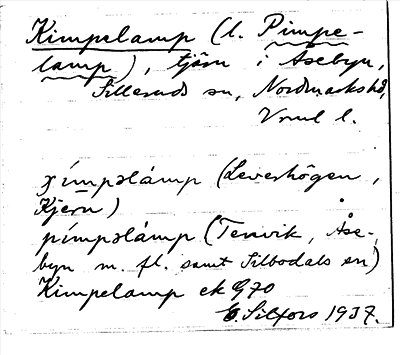 Kimpelamp (l. Pimpe-
lamp), tjärn i Åsebyn,
Silleruds sn, Nordmarks hd,
Vrml l.
χímpəlámp (Leverhögen,
Kjern)
pímpəlámp (Tenvik, Åse-
byn m. fl. samt Silbodals sn)
Kimpelamp ek G70
Silfors 1937.